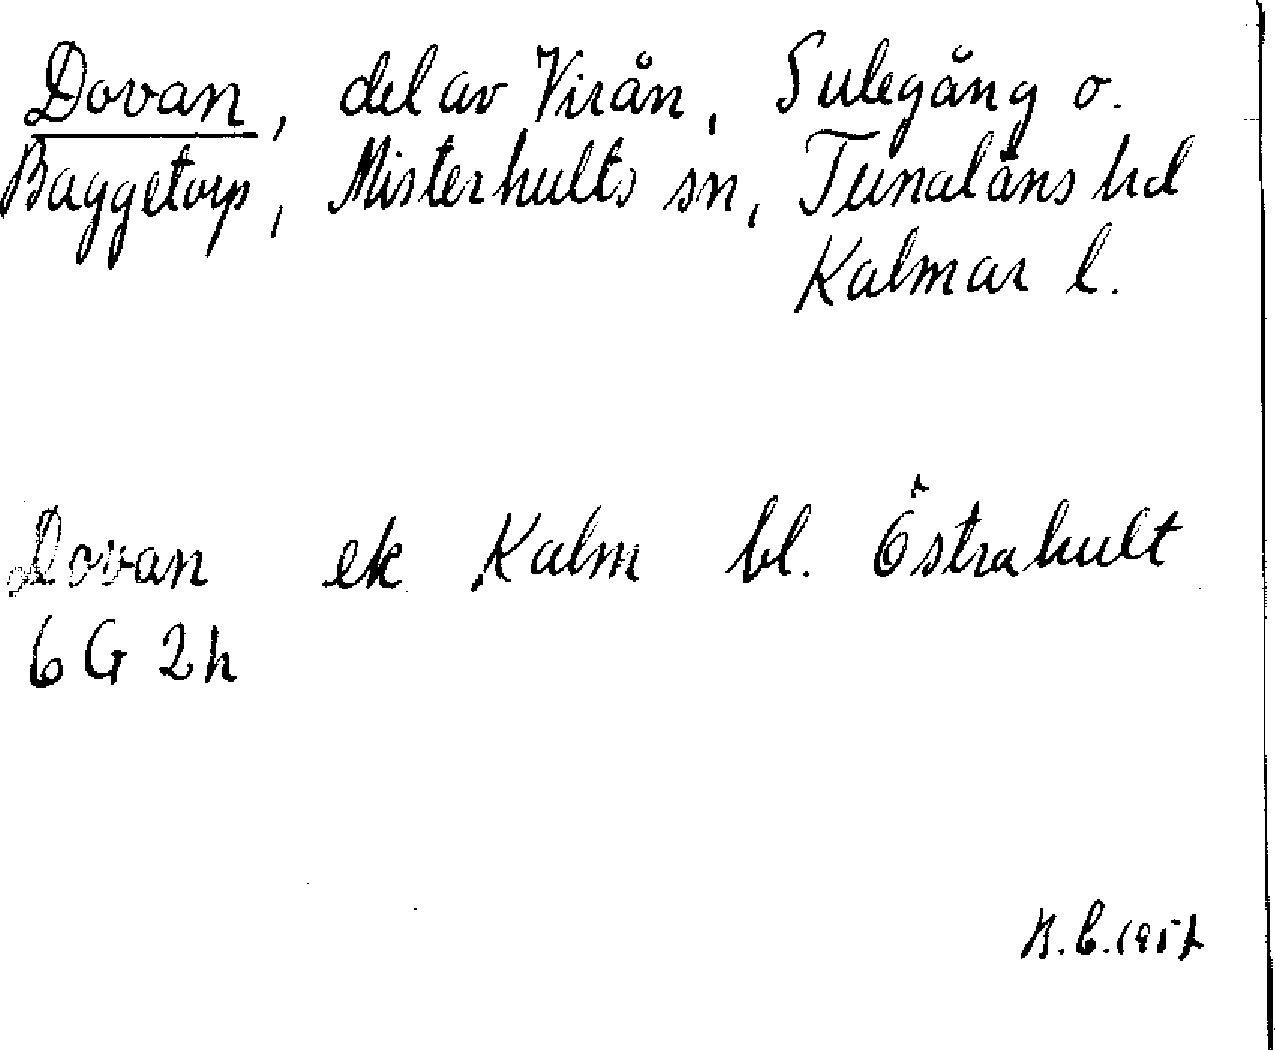 Dovan, del av Virån, Sulegång o.
Baggetorp, Misterhults sn, Tunaläns hd
Kalmar l.
Dovan ek Kalm bl. Östrahult
6 G 2h